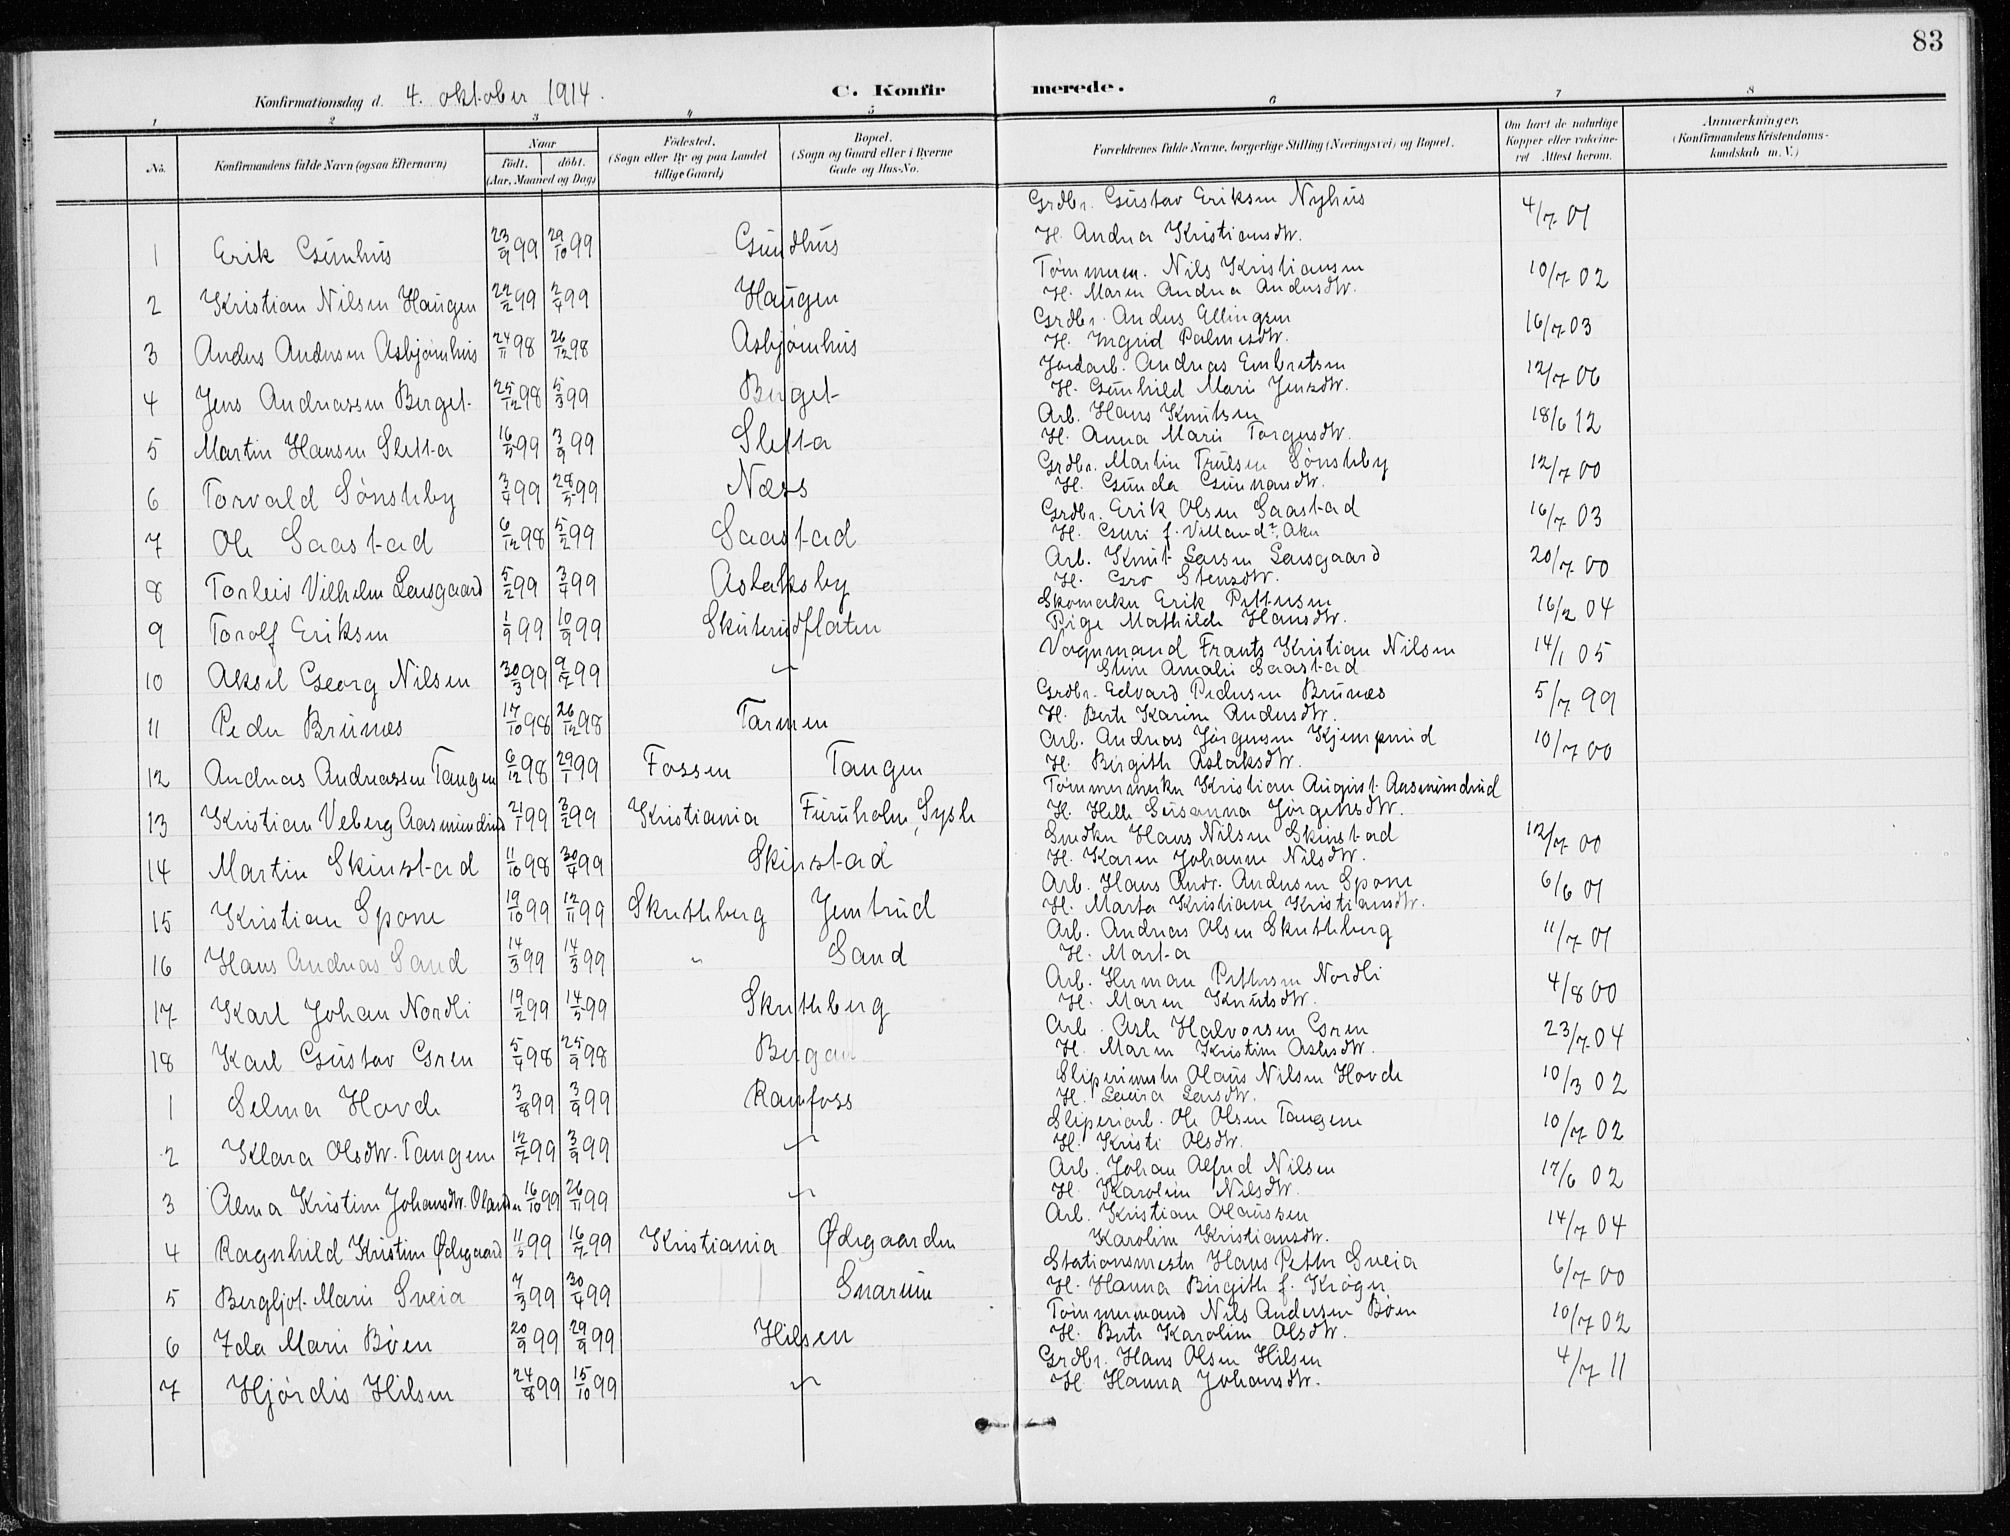 83
Konfirmationsdag d. 4. oktober 1914. C. Konfirmerede.
1 2 3 4 5 6 7 8
No. Konfirmandens fulde Navn (ogsaa Efternavn) Naar født. døbt. (Aar, Maaned og Dag) Fødested. (Sogn eller By og paa Landet tillige Gaard) Bopæl. (Sogn og Gaard eller i Byerne Gade og Hus-No. Forældrenes fulde Navne, borgerlige Stilling (Næringsvei) og Bopæl. Om havt de naturlige Kopper eller vakcineret Attest herom. Anmærkninger. (Konfirmandens Kristendomskundskab m. V.)
1 Erik Gunhus 23/9 99 29/10 99 Gundhus Grdbr. Gustav Eriksen Nyhus 4/7 01
H. Andrea Kristiansdtr.
2 Kristian Nilsen Haugen 22/2 99 2/4 99 Haugen Tømmerm. Nils Kristiansen 10/7 02
H. Maren Andrea Andersdtr.
3 Anders Andersen Asbjørnhus 24/11 98 26/12 98 Asbjørnhus Grdbr. Anders Ellingsen 16/7 03
H. Ingrid Palmesdtr.
4 Jens Andreassen Berget 25/12 98 5/3 99 Berget Jordarb. Andreas Embretsen 12/7 06
H. Gunhild Marie Jensdtr.
5 Martin Hansen Sletta 16/7 99 3/9 99 Sletta Arb. Hans Knutsen 18/6 12
H. Anna Marie Torgersdtr.
6 Torvald Sønsteby 3/4 99 28/5 99 Næss Grdbr. Martin Trulsen Sønsteby 12/7 00
H. Gunda Gunnarsdtr.
7 Ole Saastad 6/12 98 5/2 99 Saastad Grdbr. Erik Olsen Saastad 16/7 03
H. Guri f. Villand, Aker
8 Torleiv Vilhelm Larsgaard 5/2 99 3/4 99 Aslaksby Arb. Knut Larsen Larsgaard 20/7 00
H. Gro Stensdtr.
9 Torolf Eriksen 1/9 99 10/9 99 Skuterudflaten Skomaker Erik Pettersen 16/2 04
Pige Mathilde Hansdtr.
10 Aksel Georg Nilsen 30/3 99 9/7 99 " Vognmand Frants Kristian Nilsen 14/1 05
Stine Amalie Saastad
11 Peder Brunes 17/10 98 26/12 98 Tarmen Grdbr. Edvard Pedersen Brunæs 5/7 99
H. Berte Karine Andersdtr.
12 Andreas Andreassen Tangen 6/12 98 29/1 99 Fossen Tangen Arb. Andreas Jørgensen Kjemperud 10/7 00
H. Birgith Aslaksdtr.
13 Kristian Veberg Aasmundrud 21/1 99 3/2 99 Kristiania Furuholm, Sysle Tømmermerker Kristian August Aasmundrud
H. Helle Susanna Jørgensdtr.
14 Martin Skinstad 11/10 98 30/4 99 Skinstad Snedker Hans Nilsen Skinstad 12/7 00
H. Karen Johanne Nilsdtr.
15 Kristian Spone 19/10 99 12/11 99 Skutleberg Jemtrud Arb. Hans Andr. Andersen Spone 6/6 01
H. Marta Kristiane Kristiansdtr.
16 Hans Andreas Sand 14/3 99 14/3 99 " Sand Arb. Andreas Olsen Skutleberg 11/7 01
H. Marta
17 Karl Johan Nordli 19/2 99 14/5 99 Skutleberg Arb. Herman Pettersen Nordli 4/8 00
H. Maren Knutsdtr.
18 Karl Gustav Gren 5/4 98 25/9 98 Bergan Arb. Asle Halvorsen Gren 23/7 04
H. Maren Kristine Aslesdtr.
1 Selma Hovde 3/8 99 3/9 99 Ramfoss Sliperimester Olaus Nilsen Hovde 10/3 02
H. Laura Larsdtr.
2 Klara Olsdtr. Tangen 12/7 99 3/9 99 " Sliperiarb. Ole Olsen Tangen 10/7 02
H. Kristi Olsdtr.
3 Alma Kristine Johansdtr. Olausen 16/10 99 26/11 99 " Arb. Johan Alfred Nilsen 17/6 02
H. Karoline Nilsdtr.
4 Ragnhild Kristine Ødegaard 11/5 99 16/7 99 Kristiania Ødegaarden Arb. Kristian Olaussen 14/7 04
Karoline Kristiansdtr.
5 Bergljot Marie Sveia 7/3 99 30/4 99 Snarum Stationsmester Hans Petter Sveia 6/7 00
H. Hanna Birgith f. Krøger
6 Ida Marie Bøen 20/9 99 29/9 99 Hilsen Tømmermand Nils Andersen Bøen 10/7 02
H. Berte Karoline Olsdtr.
7 Hjørdis Hilsen 24/8 99 15/10 99 " Grdbr. Hans Olsen Hilsen 4/7 11
H Hanna Johansdtr.